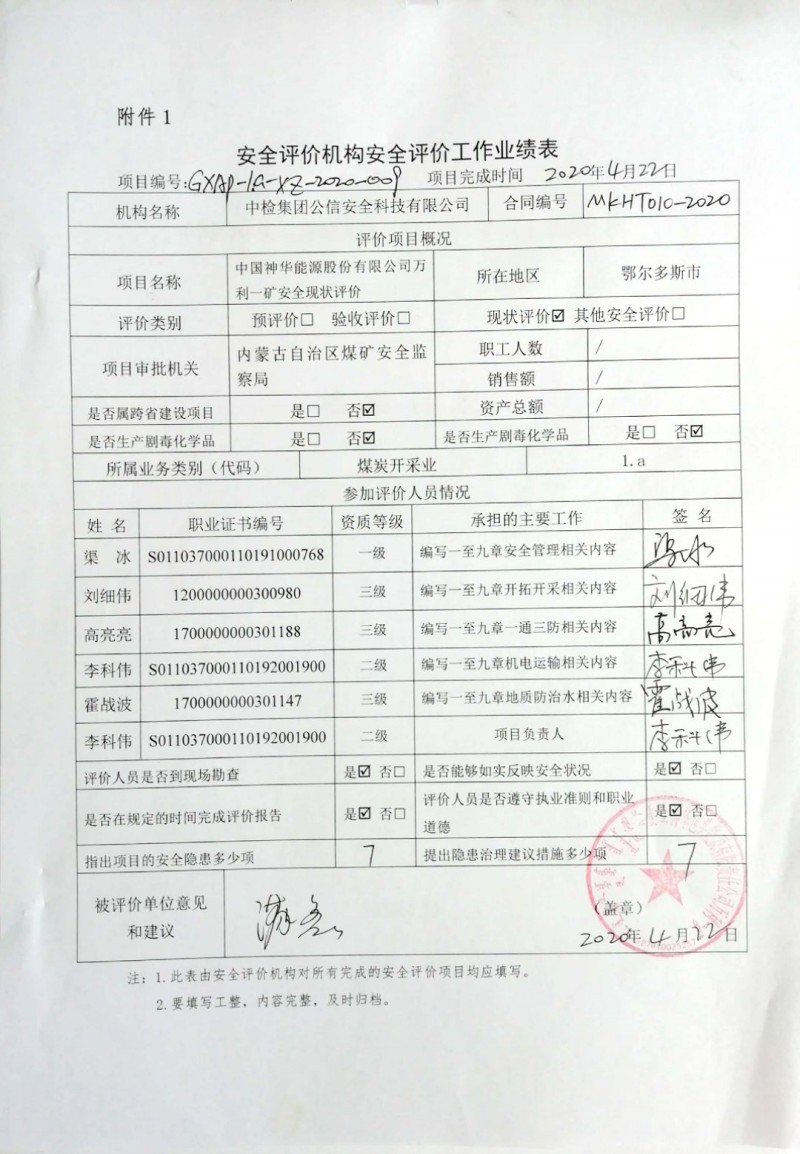 附件 1
安全评价机构安全评价工作业绩表
项目编号:GXAP-1a-XZ-2020-009 项目完成时间 2020年4月22日
机构名称 中检集团公信安全科技有限公司 合同编号 MKHT010-2020
评价项目概况
项目名称 中国神华能源股份有限公司万利一矿安全现状评价 所在地区 鄂尔多斯市
评价类别 预评价□ 验收评价□ 现状评价☑ 其他安全评价□
项目审批机关 内蒙古自治区煤矿安全监察局 职工人数 /
销售额 /
是否属跨省建设项目 是□ 否☑ 资产总额 /
是否生产剧毒化学品 是□ 否☑ 是否生产剧毒化学品 是□ 否☑
所属业务类别（代码） 煤炭开采业 1.a
参加评价人员情况
姓 名 职业证书编号 资质等级 承担的主要工作 签 名
渠 冰 S011037000110191000768 一级 编写一至九章安全管理相关内容 渠冰
刘细伟 1200000000300980 三级 编写一至九章开拓开采相关内容 刘细伟
高亮亮 1700000000301188 三级 编写一至九章一通三防相关内容 高亮亮
李科伟 S011037000110192001900 二级 编写一至九章机电运输相关内容 李科伟
霍战波 1700000000301147 三级 编写一至九章地质防治水相关内容 霍战波
李科伟 S011037000110192001900 二级 项目负责人 李科伟
评价人员是否到现场勘查 是☑ 否□ 是否能够如实反映安全状况 是☑ 否□
是否在规定的时间完成评价报告 是☑ 否□ 评价人员是否遵守执业准则和职业道德 是☑ 否□
指出项目的安全隐患多少项 7 提出隐患治理建议措施多少项 7
被评价单位意见和建议
（盖章）
2020年4月22日
注：1.此表由安全评价机构对所有完成的安全评价项目均应填写。
2.要填写工整，内容完整，及时归档。